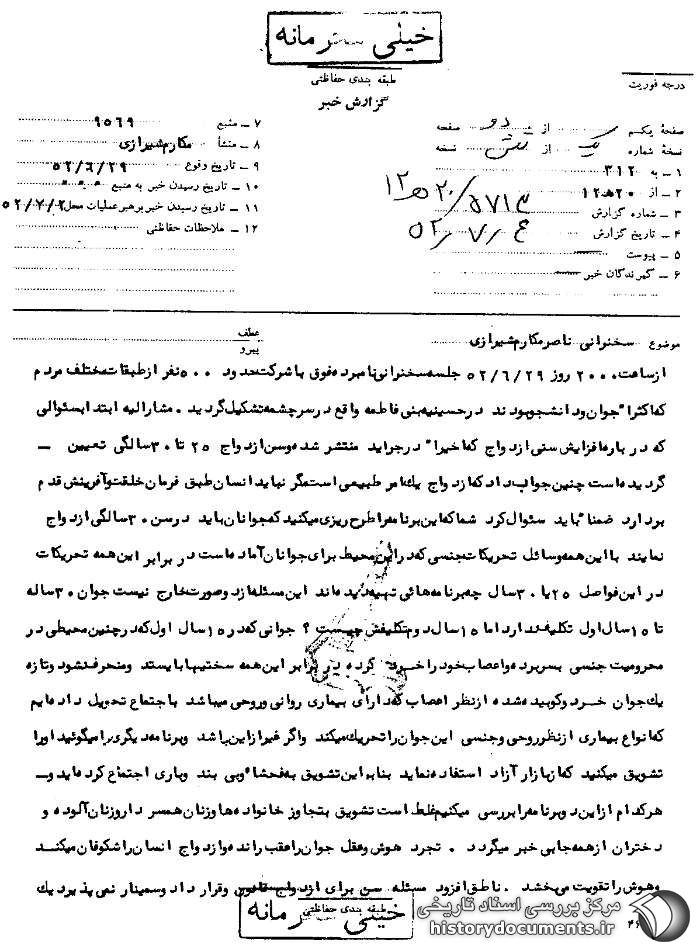 خیلی محرمانه
طبقه بندی حفاظتی
گزارش خبر
درجه فوریت
صفحهٔ یکم از دو صفحه
نسخهٔ شماره یک از شش نسخه
۱ – به ۳۱۲
۲ – از ۲۰ ه ۱۲
۳ – شماره گزارش
۱۲ ه ۲۰/۵۷۱۳
۴ – تاریخ گزارش ۵۲/۷/۴
۵ – پیوست
۶ – گیرندگان خبر
۷ – منبع ۹۵۶۹
۸ – منشأ مکارم شیرازی
۹ – تاریخ وقوع ۵۲/۶/۲۹
۱۰ – تاریخ رسیدن خبر به منبع
۱۱ – تاریخ رسیدن خبر برهبر عملیات محل ۵۲/۷/۲
۱۲ – ملاحظات حفاظتی
موضوع سخنرانی ناصر مکارم شیرازی
عطف
پیرو
از ساعت ۲۰۰۰ روز ۵۲/۶/۲۹ جلسه سخنرانی نامبرده فوق با شرکت حدود ۵۰۰ نفر از طبقات مختلف مردم
که اکثراً جوان و دانشجو بودند در حسینیه بنی فاطمه واقع در سرچشمه تشکیل گردید . مشارالیه ابتدا بسئوالی
که در باره افزایش سنی ازدواج که اخیراً در جراید منتشر شده و سن ازدواج ۲۵ تا ۳۰ سالگی تعیین –
گردیده است چنین جواب داد که ازدواج یک امر طبیعی است مگر نباید انسان طبق فرمان خلقت و آفرینش قدم
بردارد ضمناً باید سئوال کرد شما که این برنامه را طرح ریزی میکنید که جوانان باید در سن ۳۰ سالگی ازدواج
نمایند با این همه وسائل تحریکات جنسی که در این محیط برای جوانان آماده است در برابر این همه تحریکات
در این فواصل ۲۵ یا ۳۰ سال چه برنامه هائی تهیه دیده اند این مسئله از دو صورت خارج نیست جوان ۳۰ ساله
تا ۱۵ سال اول تکلیف ندارد اما ۱۵ سال دوم تکلیفش چیست ؟ جوانی که در ۱۵ سال اول که در چنین محیطی در
محرومیت جنسی بسر برده و اعصاب خود را خرد کرده در برابر این همه سختیها بایستد و منحرف نشود و تازه
یک جوان خرد و کوبیده شده از نظر اعصاب که دارای بیماری روانی و روحی میباشد با جتماع تحویل داده ایم
که انواع بیماری از نظر روحی و جنسی این جوان را تحریک میکند و اگر غیر از این باشد و برنامه دیگری را میگوئید او را
تشویق میکنید که از بازار آزاد استفاده نماید بنابه این تشویق به فحشا و بی بند وباری اجتماع کرده اید و –
هر کدام از این دو برنامه را بررسی میکنیم غلط است تشویق بتجاوز خانواده ها و زنان همسر دار و زنان آلوده و
دختران از همه جا بی خبر میگردد . تجرد هوش و عقل جوان را عقب رانده و ازدواج انسان را شکوفان میکند
وهوش را تقویت می بخشد . ناطق افزود مسئله سن برای ازدواج قانون وقرار داد و سمینار نمی پذیرد یک
طبقه بندی حفاظتی
خیلی محرمانه
۴۶
مرکز بررسی اسناد تاریخی
historydocuments.ir